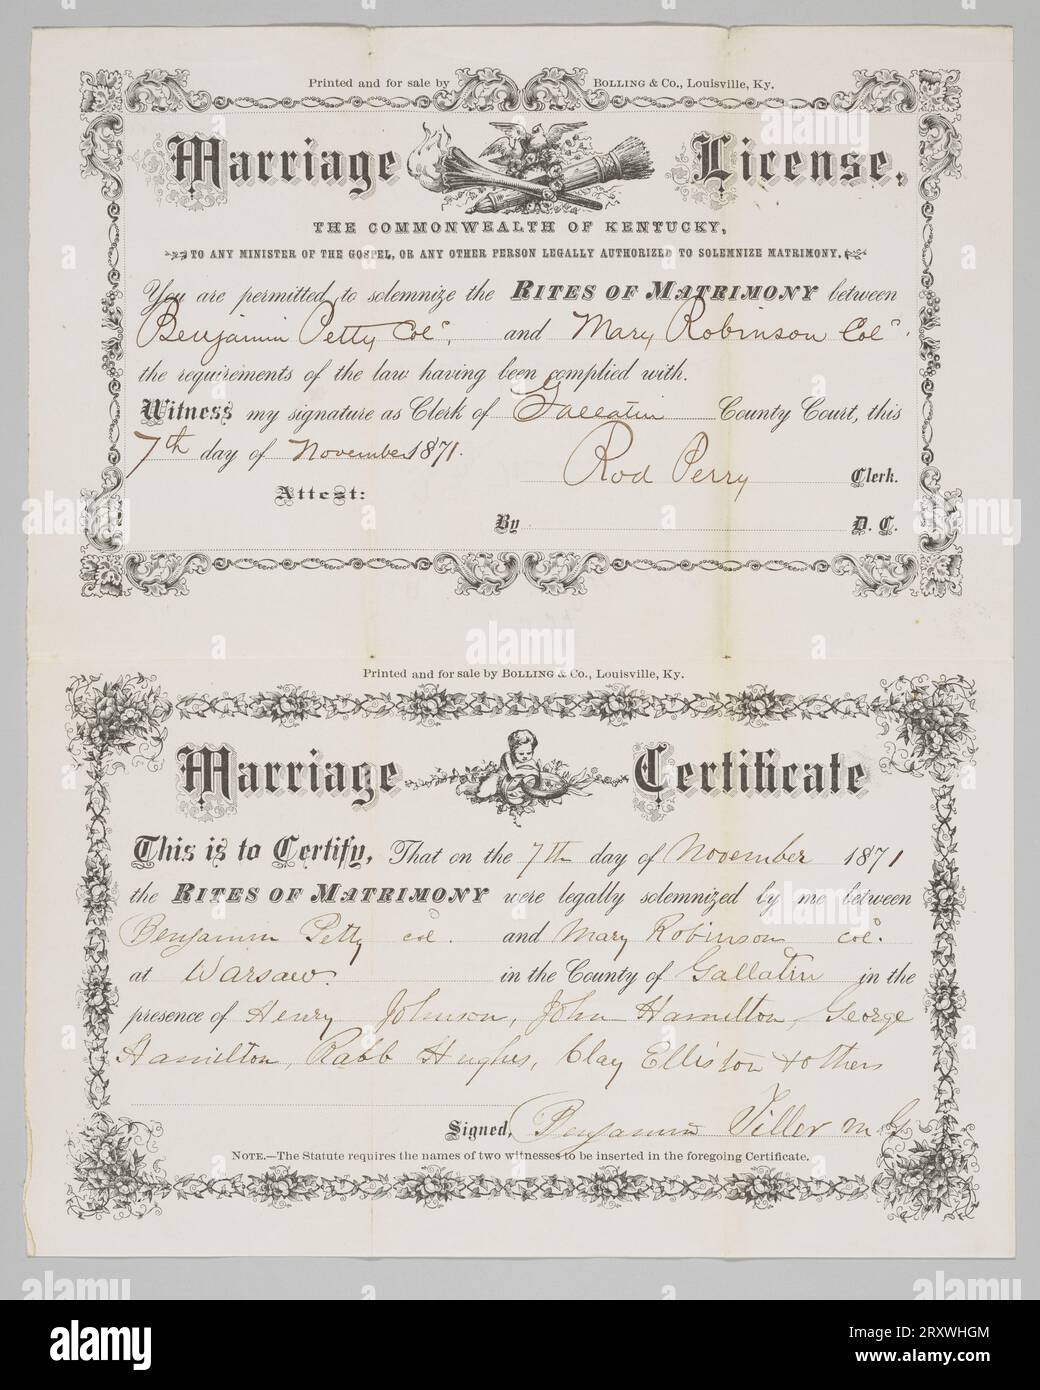 Printed and for sale by BOLLING & Co., Louisville, Ky.
Marriage License,
THE COMMONWEALTH OF KENTUCKY,
TO ANY MINISTER OF THE GOSPEL, OR ANY OTHER PERSON LEGALLY AUTHORIZED TO SOLEMNIZE MATRIMONY.
You are permitted to solemnize the RITES OF MATRIMONY between
Benjamin Petty Col^d, and Mary Robinson Col^d.
the requirements of the law having been complied with.
Witness my signature as Clerk of Gallatin County Court, this
7th day of November 1871.
Rod Perry Clerk.
Attest:
By D. C.
Printed and for sale by BOLLING & Co., Louisville, Ky.
Marriage Certificate
This is to Certify, That on the 7th day of November 1871
the RITES OF MATRIMONY were legally solemnized by me between
Benjamin Petty col. and Mary Robinson col.
at Warsaw. in the County of Gallatin in the
presence of Henry Johnson, John Hamilton, George
Hamilton, Rabb Hughes, Clay Elliston & others
Signed, Benjamin Tiller M. G.
NOTE.—The Statute requires the names of two witnesses to be inserted in the foregoing Certificate.
alamy
Image ID: 2RXWHGM
www.alamy.com